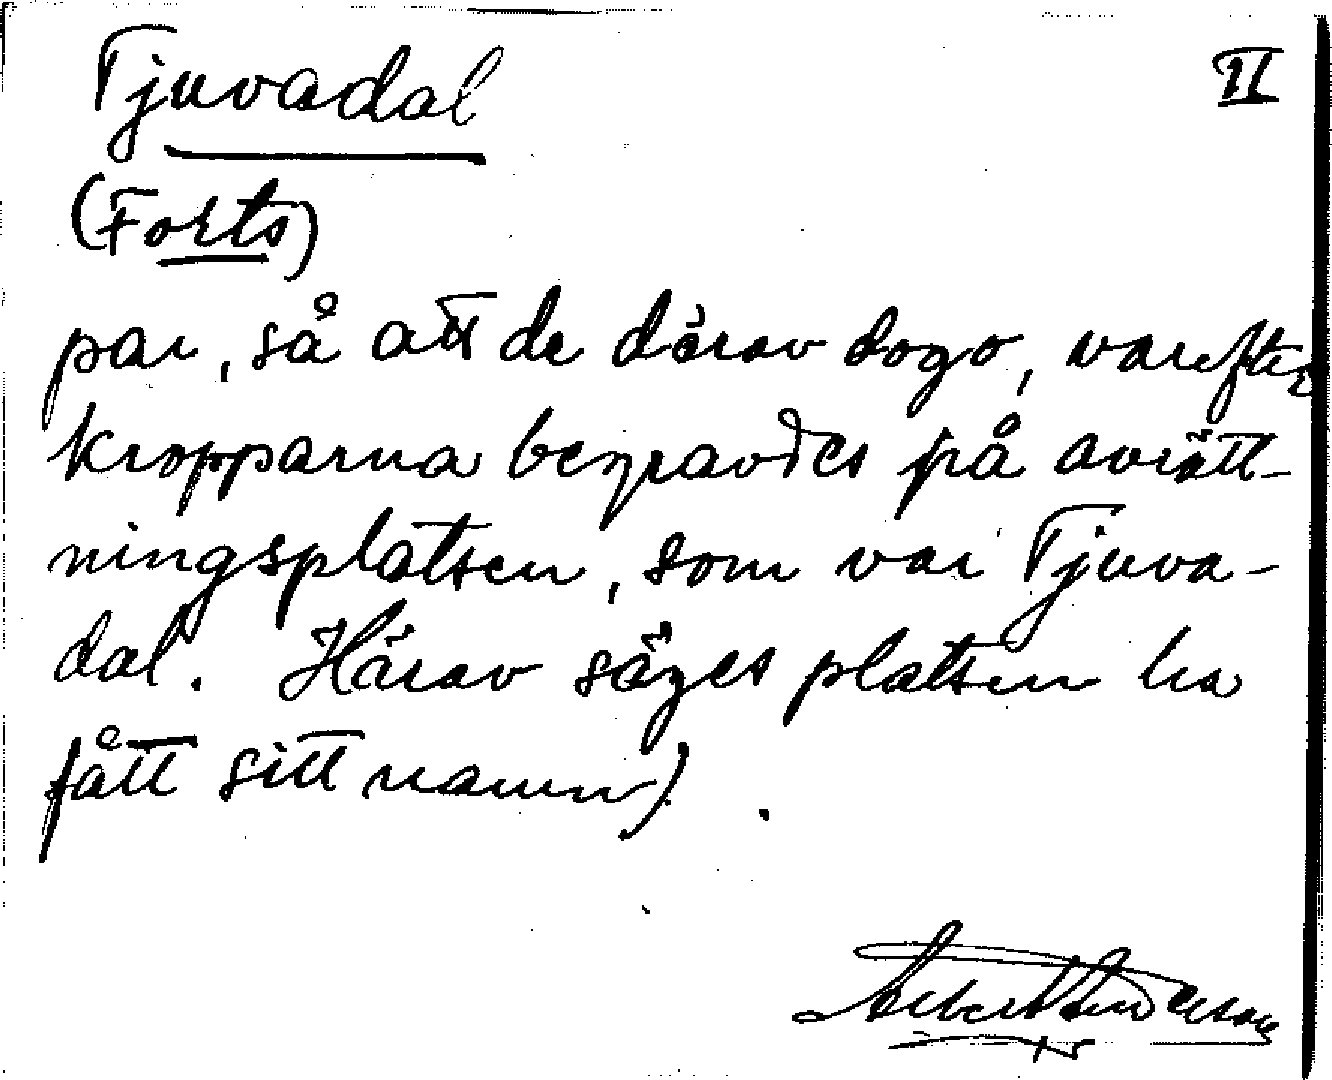 Tjuvadal II
(Forts)
par, så att de därav dogo, varefter
kropparna begravdes på avrätt-
ningsplatsen, som var Tjuva-
dal. Härav säges platsen ha
fått sitt namn).
Albert Anderson